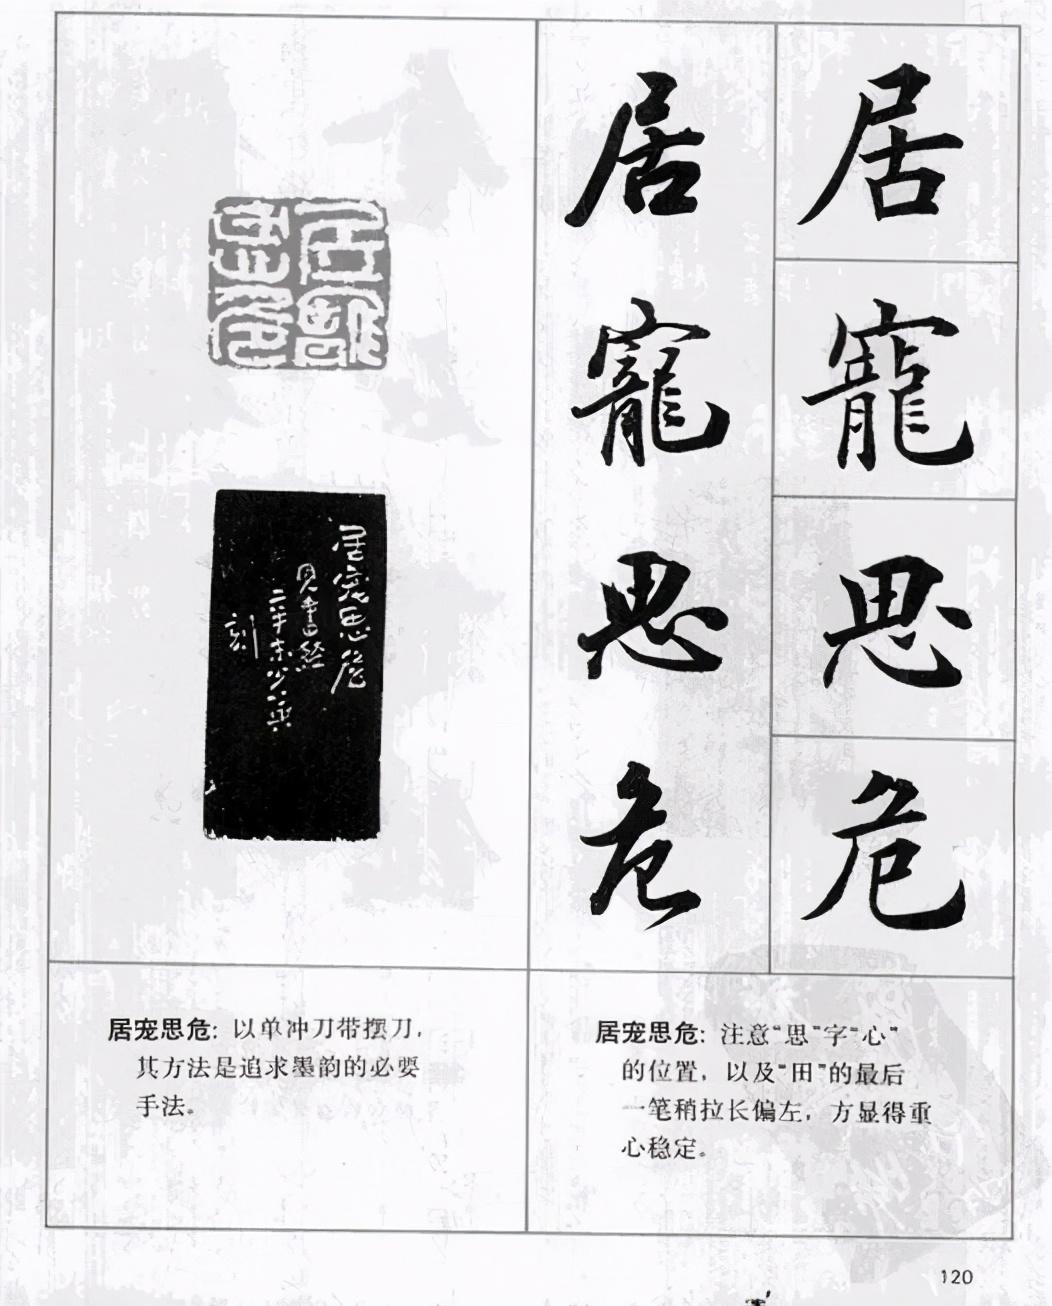 居寵思危
居寵思危
居寵思危
居宠思危
見書經
刻
居宠思危：以单冲刀带摆刀，
其方法是追求墨韵的必要
手法。
居宠思危：注意“思”字“心”
的位置，以及“田”的最后
一笔稍拉长偏左，方显得重
心稳定。
120